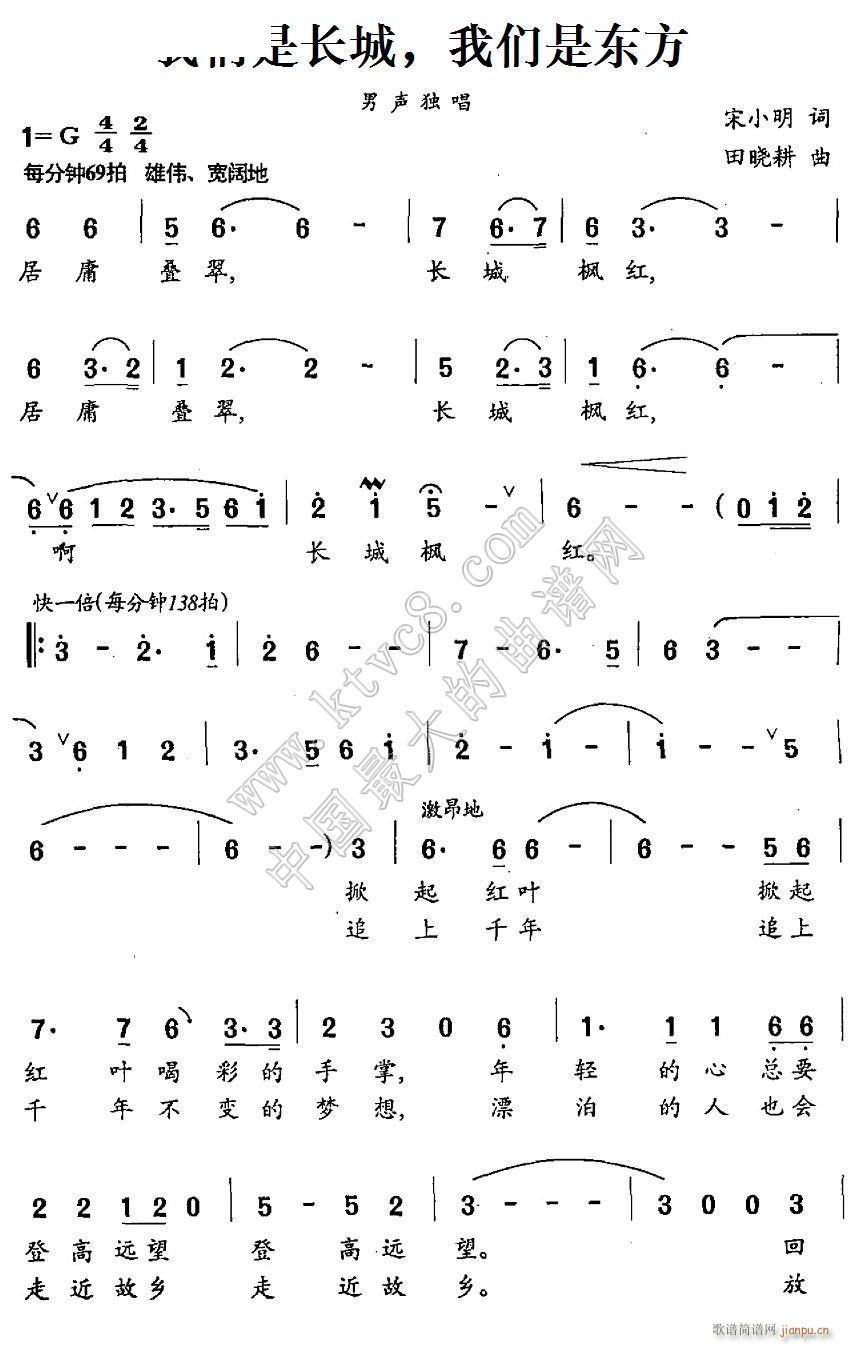 我们是长城，我们是东方
男声独唱
宋小明 词
1=G 4/4 2/4
田晓耕 曲
每分钟69拍 雄伟、宽阔地
6 6 | 5 6· 6 - | 7 6·7 | 6 3· 3 - |
居庸叠翠, 长城枫红,
6 3·2 | 1 2· 2 - | 5 2·3 | 1 6· 6 -
居庸叠翠, 长城枫红,
6 ∨ 6 1 2 3·5 6 i | 2 i 5 - ∨ | 6 - - (0 i 2 |
啊 长城枫红。
快一倍(每分钟138拍)
‖: 3 - 2· i | 2 6 - - | 7 - 6· 5 | 6 3 - - |
3 ∨ 6 1 2 | 3· 5 6 i | 2 - i - | i - - ∨ 5 |
激昂地
6 - - - | 6 - -) 3 | 6· 6 6 - | 6 - - 5 6 |
掀起红叶 掀起
追上千年 追上
7· 7 6 3·3 | 2 3 0 6 | 1· 1 1 6 6 |
红叶喝彩的手掌, 年轻的心总要
千年不变的梦想, 漂泊的人也会
2 2 1 2 0 | 5 - 5 2 | 3 - - - | 3 0 0 3 |
登高远望 登高远望。 回
走近故乡 走近故乡。 放
www.ktvc8.com
中国最大的曲谱网
歌谱简谱网
jianpu.cn